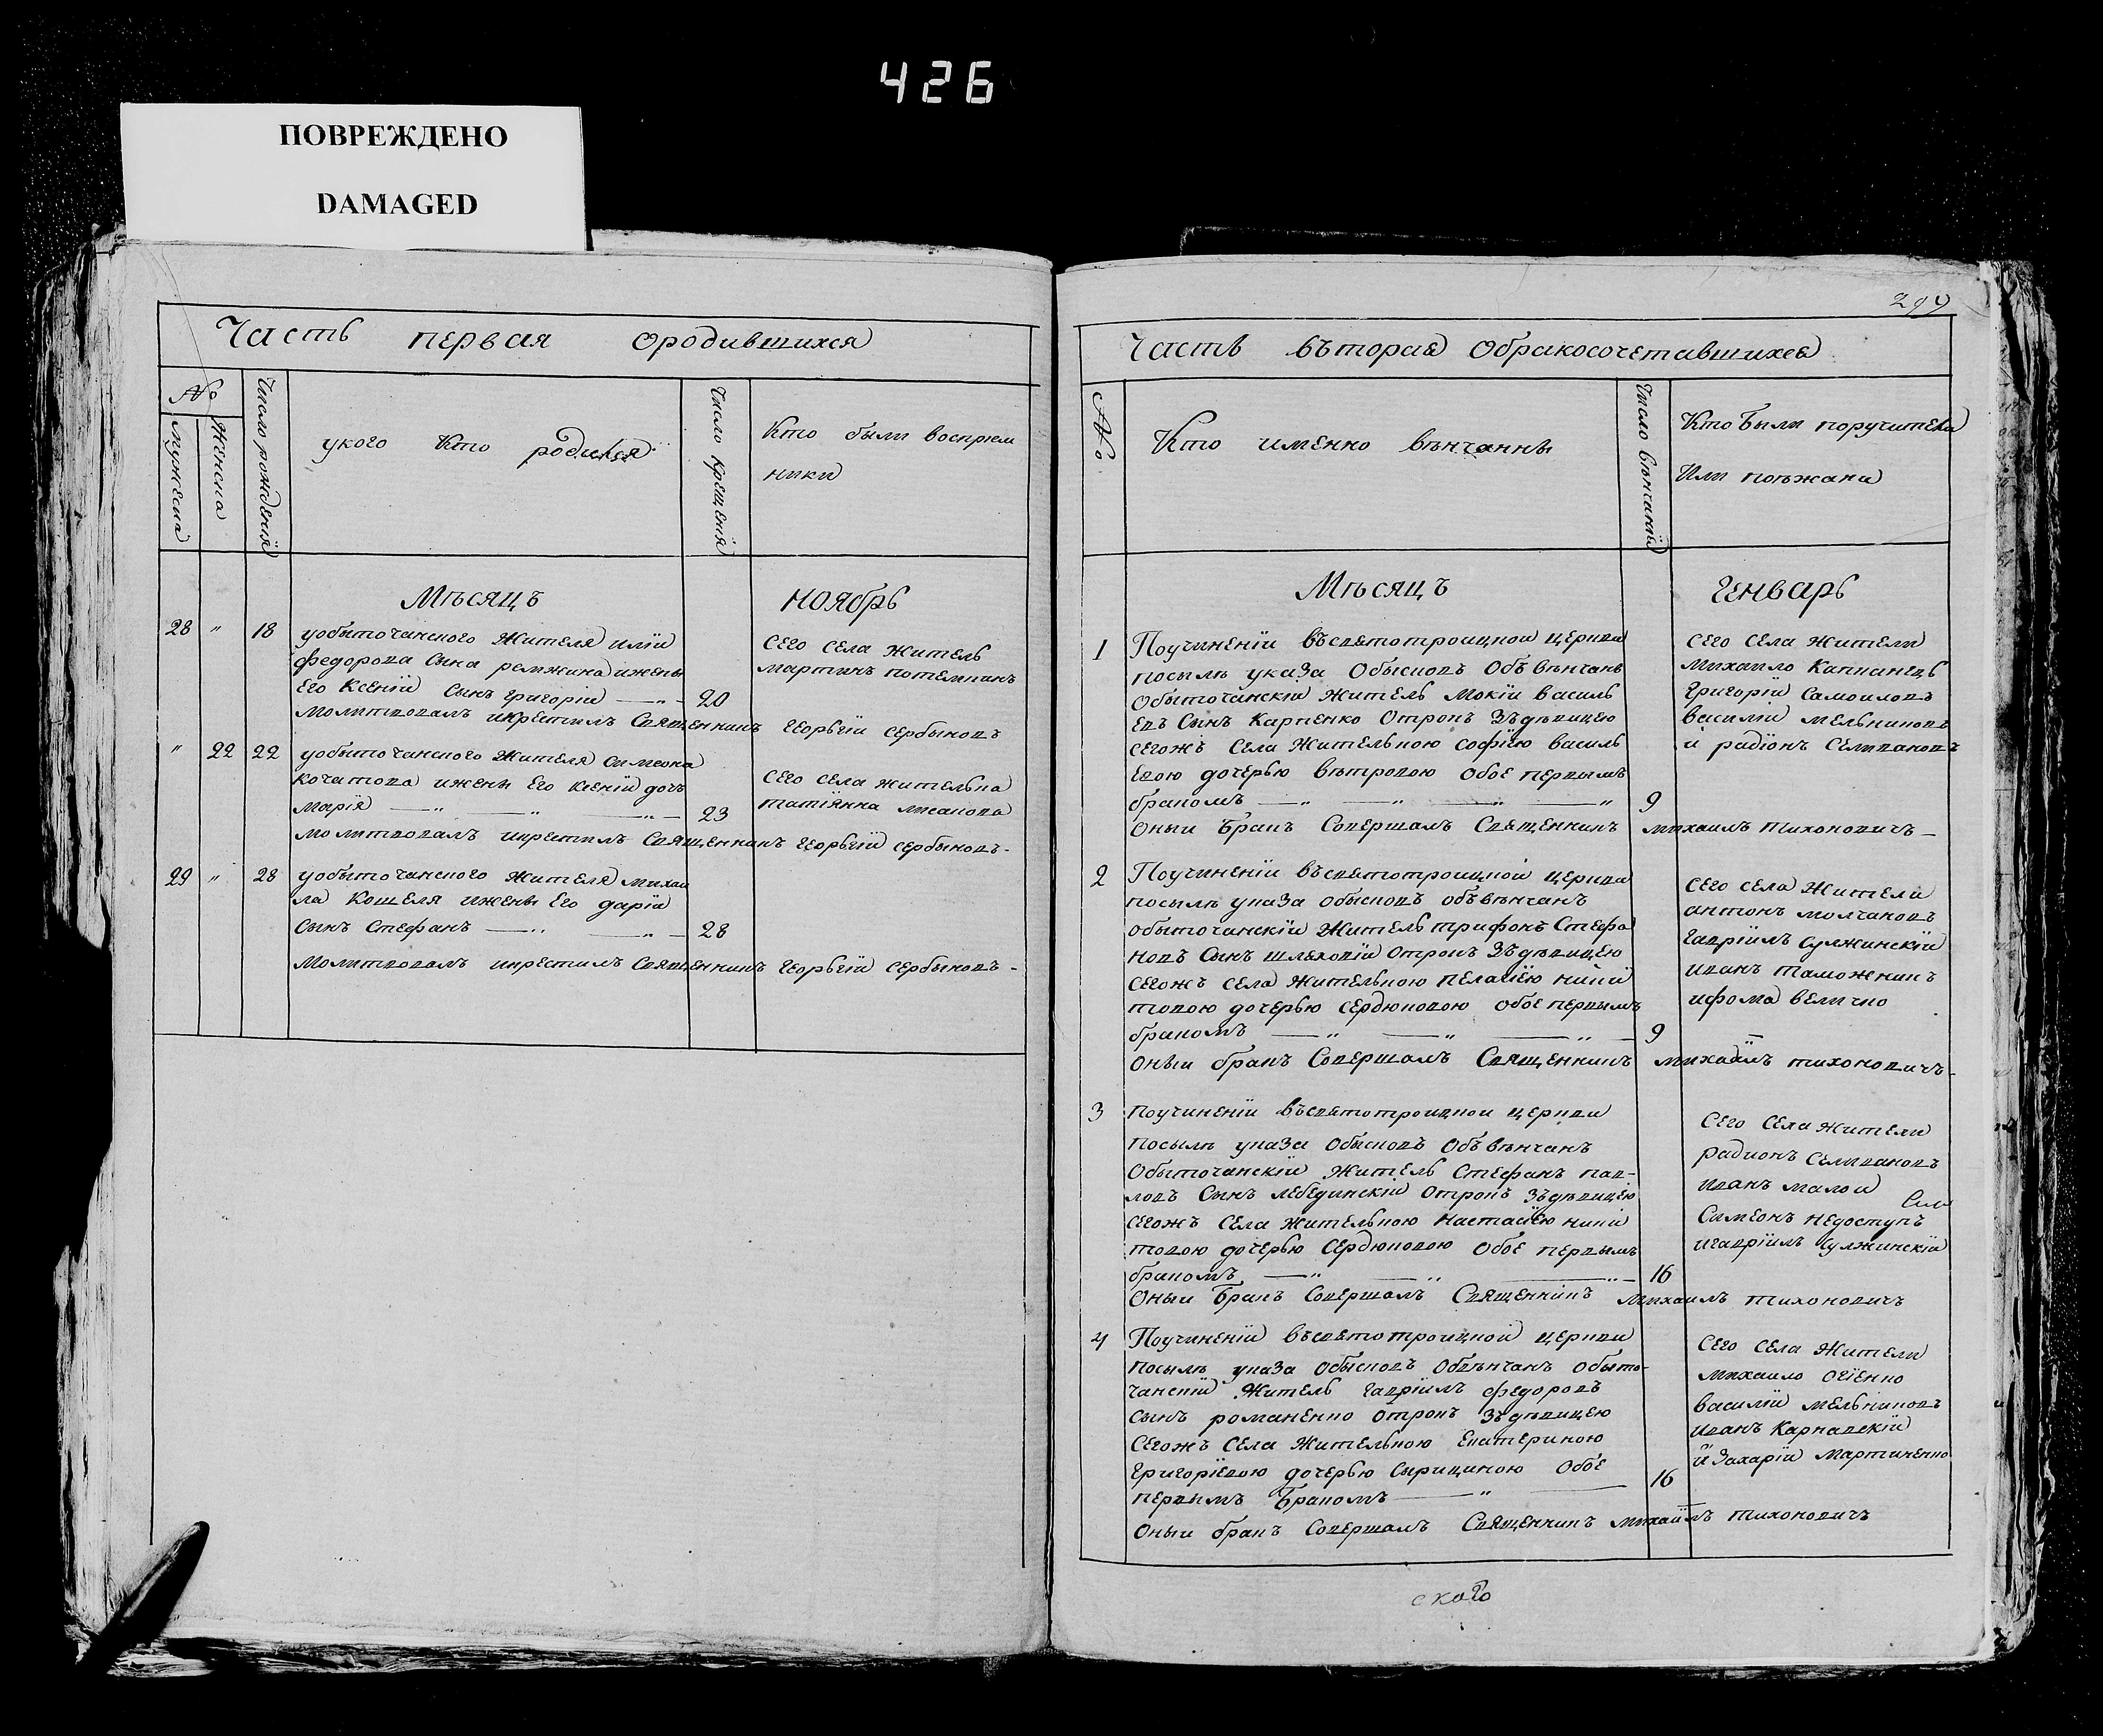 426
ПОВРЕЖДЕНО
DAMAGED
Часть первая ородившихся
№
мужеска
Женска
Число рожденія
укого Кто родился
Число крещенія
Кто были восприем
ники
Мѣсяцъ Ноябрь
28 " 18 уобыточанского Жителя иліи
федорова Сына ремжина ижены
Его Ксеніи Сынъ григоріи 20
Сего Села Житель
мартинъ потемкинъ
Молитвовалъ икрестилъ Священникъ Георьгіи Сербиновъ
" 22 22 уобыточанского Жителя Симеона
кочатова ижены Его ксеніи дочь
марія 23
Сего Села жителька
татіянна
молитвовалъ икрестилъ Священникъ Георьгіи Сербиновъ
29 " 28 уобыточанского Жителя михаи
ла Кошеля ижены Его даріи
Сынъ Стефанъ 28
Молитвовалъ икрестилъ Священникъ Георьгіи Сербиновъ
299
Часть вьторая Обракосочетавшихся
№
Кто именно вѣнчанны
Число вѣнчаній
Кто были поручители
Или поѣжани
Мѣсяцъ Генварь
1 Поучиненіи въсвятотроицкои церкви
посылѣ указа Обысковъ Объвѣнчанъ
Обыточанскіи Житель Мокіи василь
евъ Сынъ Карпенко Отрокъ Зъдѣвицею
Сегожъ Села Жителькою Софіею василь
евою дочерью вѣтровою Обое первымъ
бракомъ 9
Сего Села Жители
Михаило Капканецъ
Григоріи Самоиловъ
василіи мельниковъ
и радіонъ Селивановъ
Оныи Бракъ Совершалъ Священникъ михаилъ тихоновичъ
2 Поучиненіи въсвятотроицкои церкви
посылѣ указа обысковъ объвѣнчанъ
обыточанскіи Житель трифонъ Стефа
новъ Сынъ шляховіи Отрокъ Зъдѣвицею
Сегожъ Села Жителькою пелагіею ники
товою дочерью Сердюковою обое первымъ
бракомъ 9
Сего Села Жители
антонъ молчановъ
гавріилъ Сулжинскіи
иванъ таможникъ
ифома величко
Оныи бракъ Совершалъ Священникъ михаилъ тихоновичъ
3 поучиненіи въсвятотроицкои церкви
посылѣ указа Обысковъ Объвѣнчанъ
Обыточанскіи Житель Стефанъ пав-
ловъ Сынъ лебединскіи Отрокъ Зъдѣвицею
Сегожъ Села Жителькою Настасіею ники
товою дочерью Сердюковою Обое первымъ
бракомъ 16
Сего Села Жители
радионъ Селивановъ
иванъ малои
Симеонъ Недоступъ
игавріилъ Сулжинскіи
Оныи Бракъ Совершалъ Священникъ михаилъ тихоновичъ
4 Поучиненіи въсвятотроицкои церкви
посылѣ указа Обысковъ Обвѣнчанъ Обыто-
чанскіи Житель гавріилъ федоровъ
Сынъ романенко Отрокъ Зъдѣвицею
Сегожъ Села Жителькою Екатериною
григоріевою дочерью Сырициною Обое
первымъ Бракомъ 16
Сего Села Жители
михаило Огіенко
василіи мельниковъ
иванъ Карнавскіи
и Захаріи Мартиченко
Оныи бракъ Совершалъ Священникъ михаилъ тихоновичъ
ского